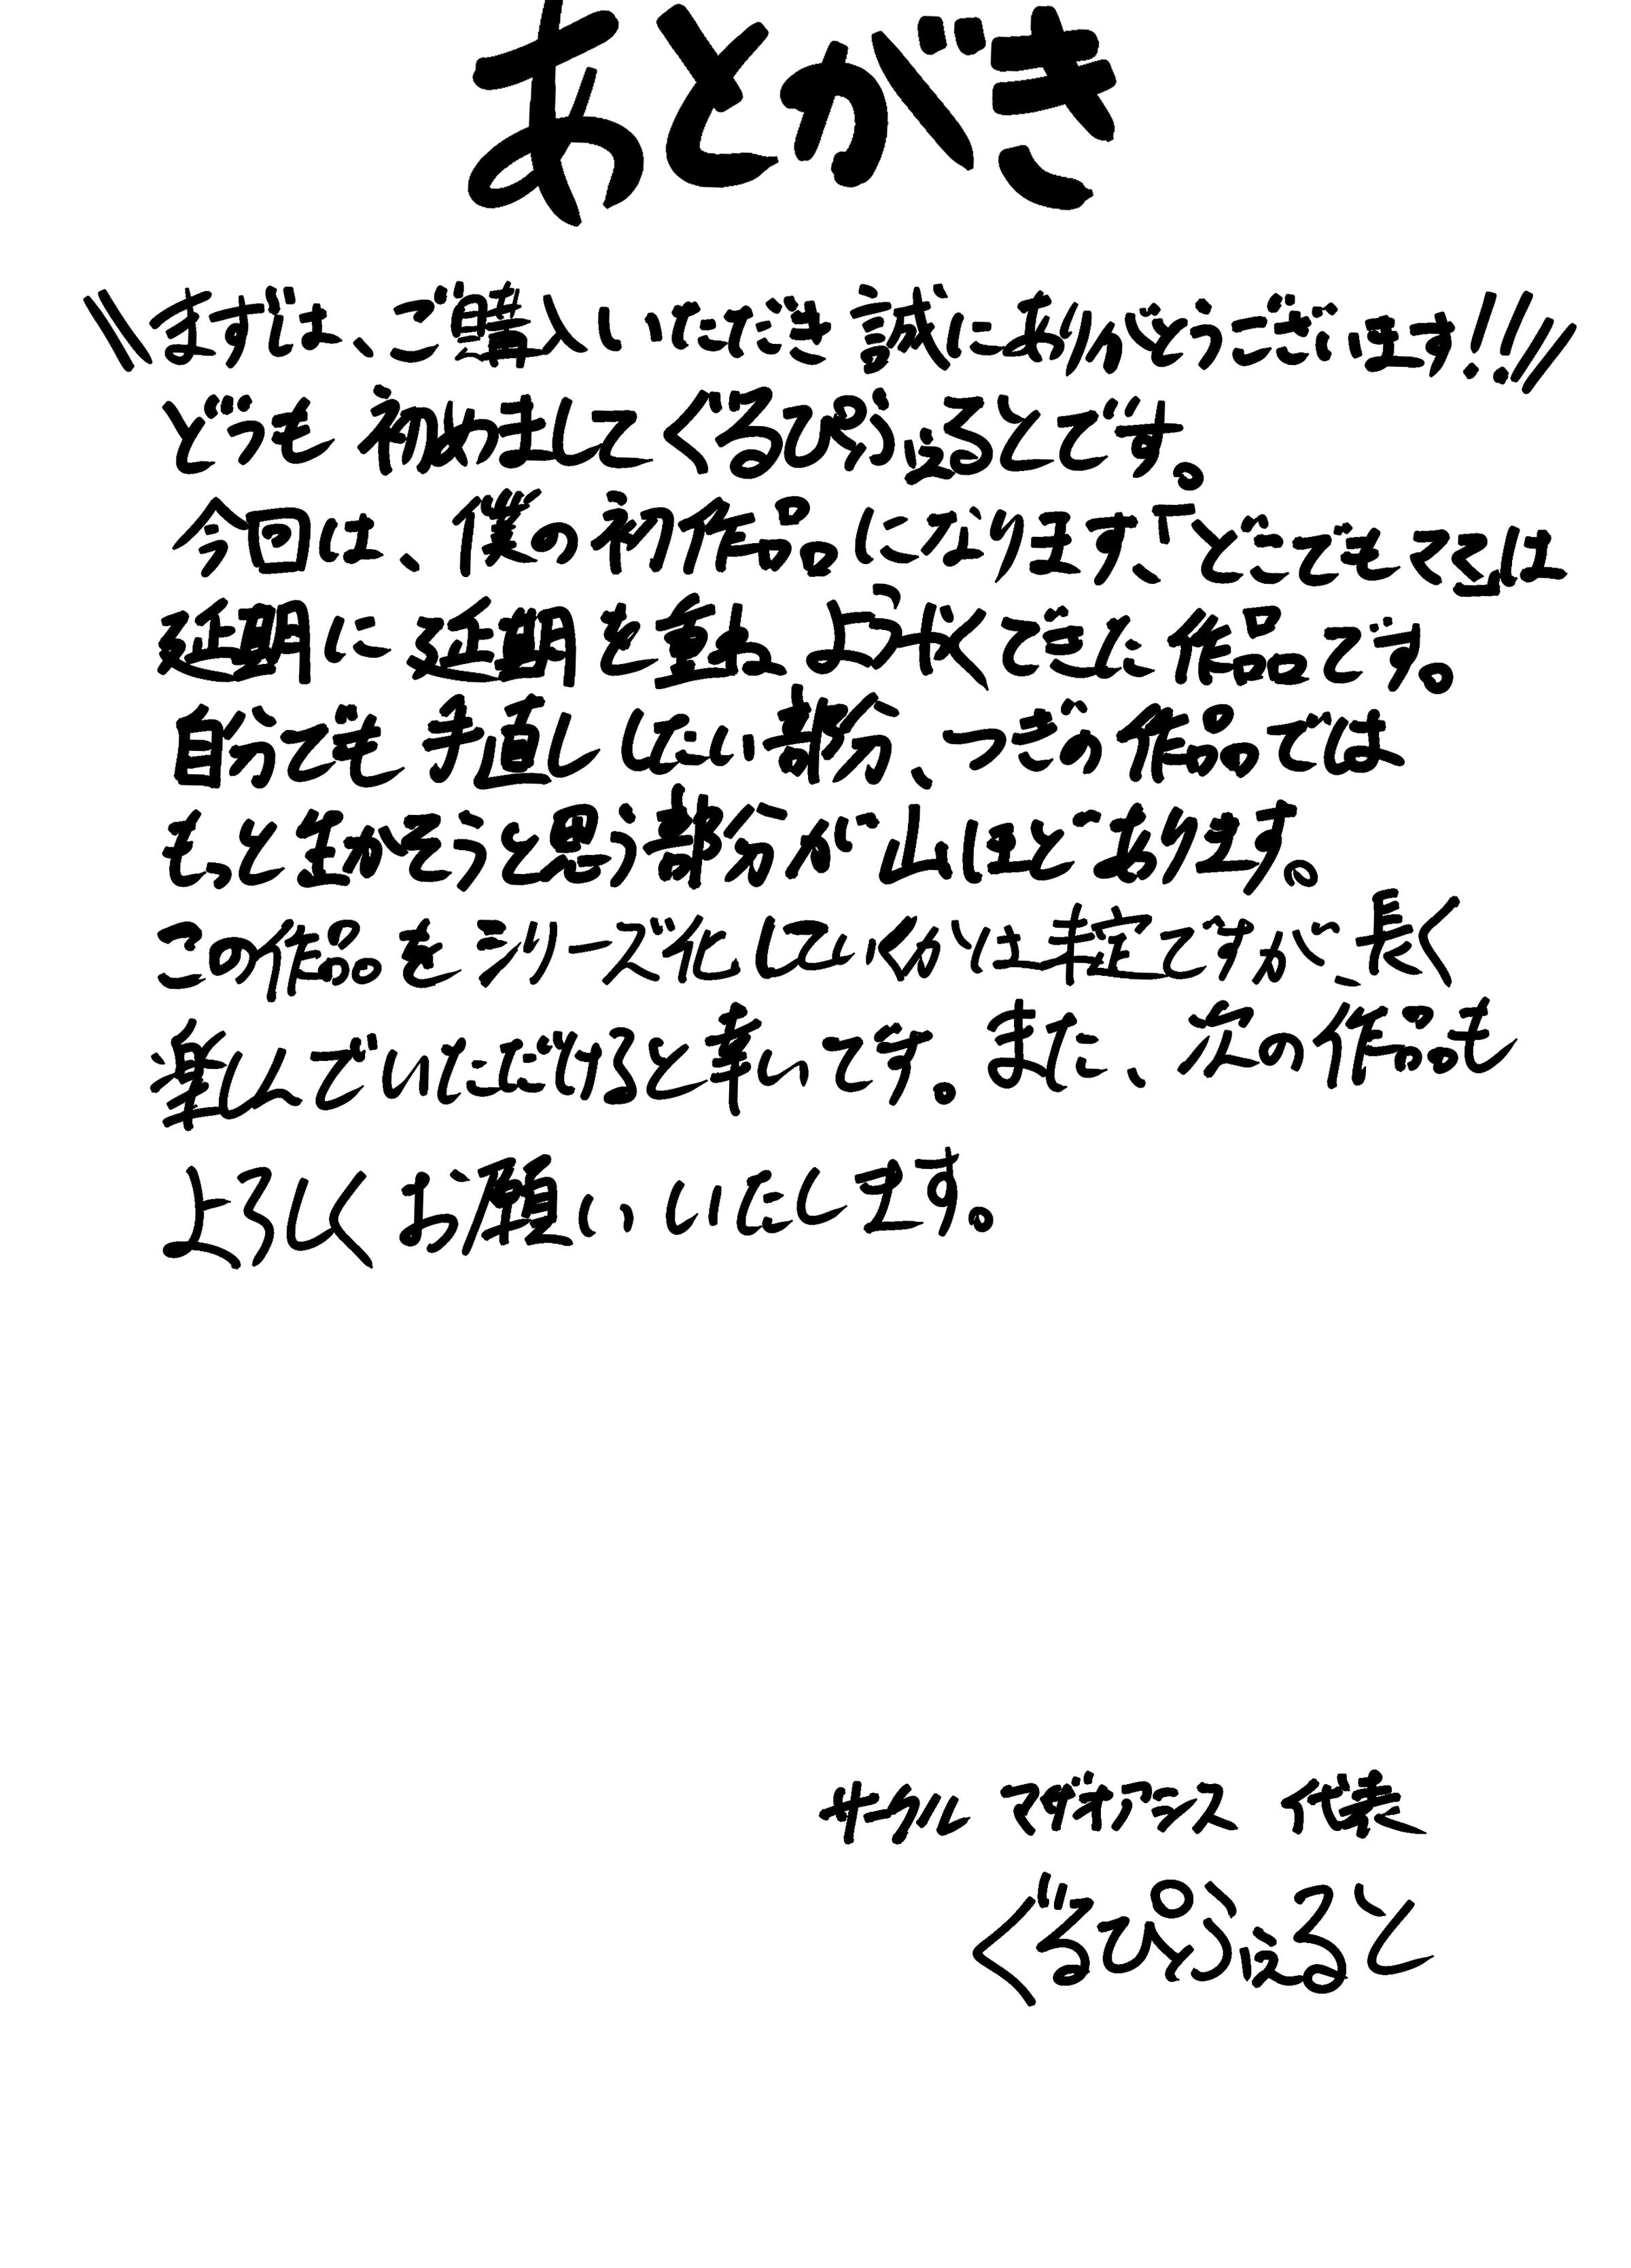 あとがき
\\まずは、ご購入いただき誠にありがとうございます!!//
どうも初めましてぐるぴよふぇるとです。
今回は、僕の初作品になります、「どこでもママ」は
延期に延期を重ねようやくできた作品です。
自分でも手直ししたい部分、つぎの作品では
もっと生かそうと思う部分が山ほどあります。
この作品をシリーズ化していくかは未定ですが、長く
楽しんでいただけると幸いです。また、次の作品も
よろしくお願いいたします。
サークル マダオアシス 代表
ぐるぴよふぇると